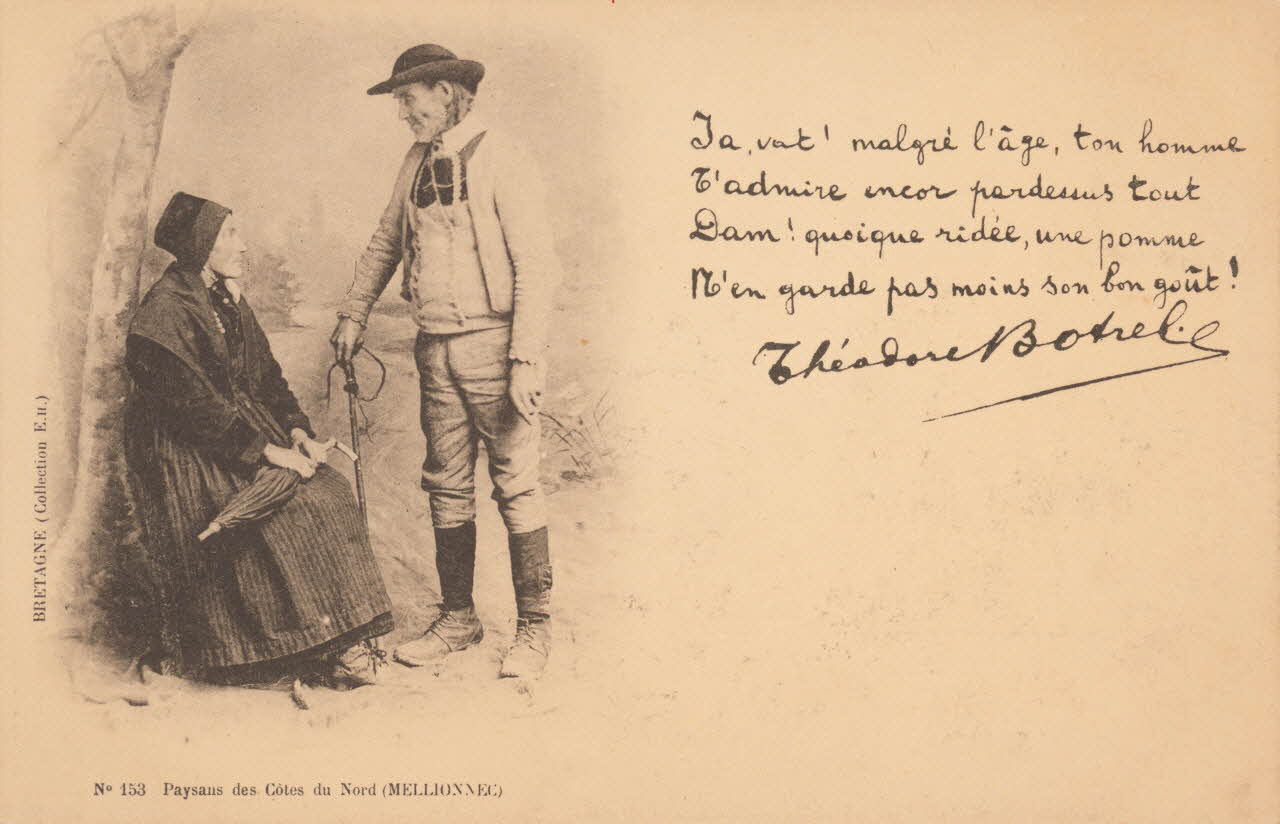 Ja, vat! malgré l'âge, ton homme
T'admire encor pardessus tout
Dam! quoique ridée, une pomme
N'en garde pas moins son bon goût!
Théodore Botrel.
BRETAGNE (Collection E.H.)
Nº 153 Paysans des Côtes du Nord (MELLIONNEC)